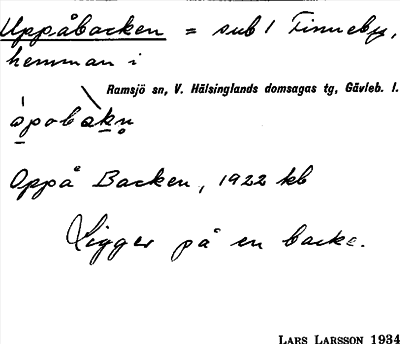 Uppåbacken = sub 1 Finneby,
hemman i
Ramsjö sn, V. Hälsinglands domsagas tg, Gävleb. l.
åpobakn̥
Oppå Backen, 1922 kb
Ligger på en backe.
LARS LARSSON 1934